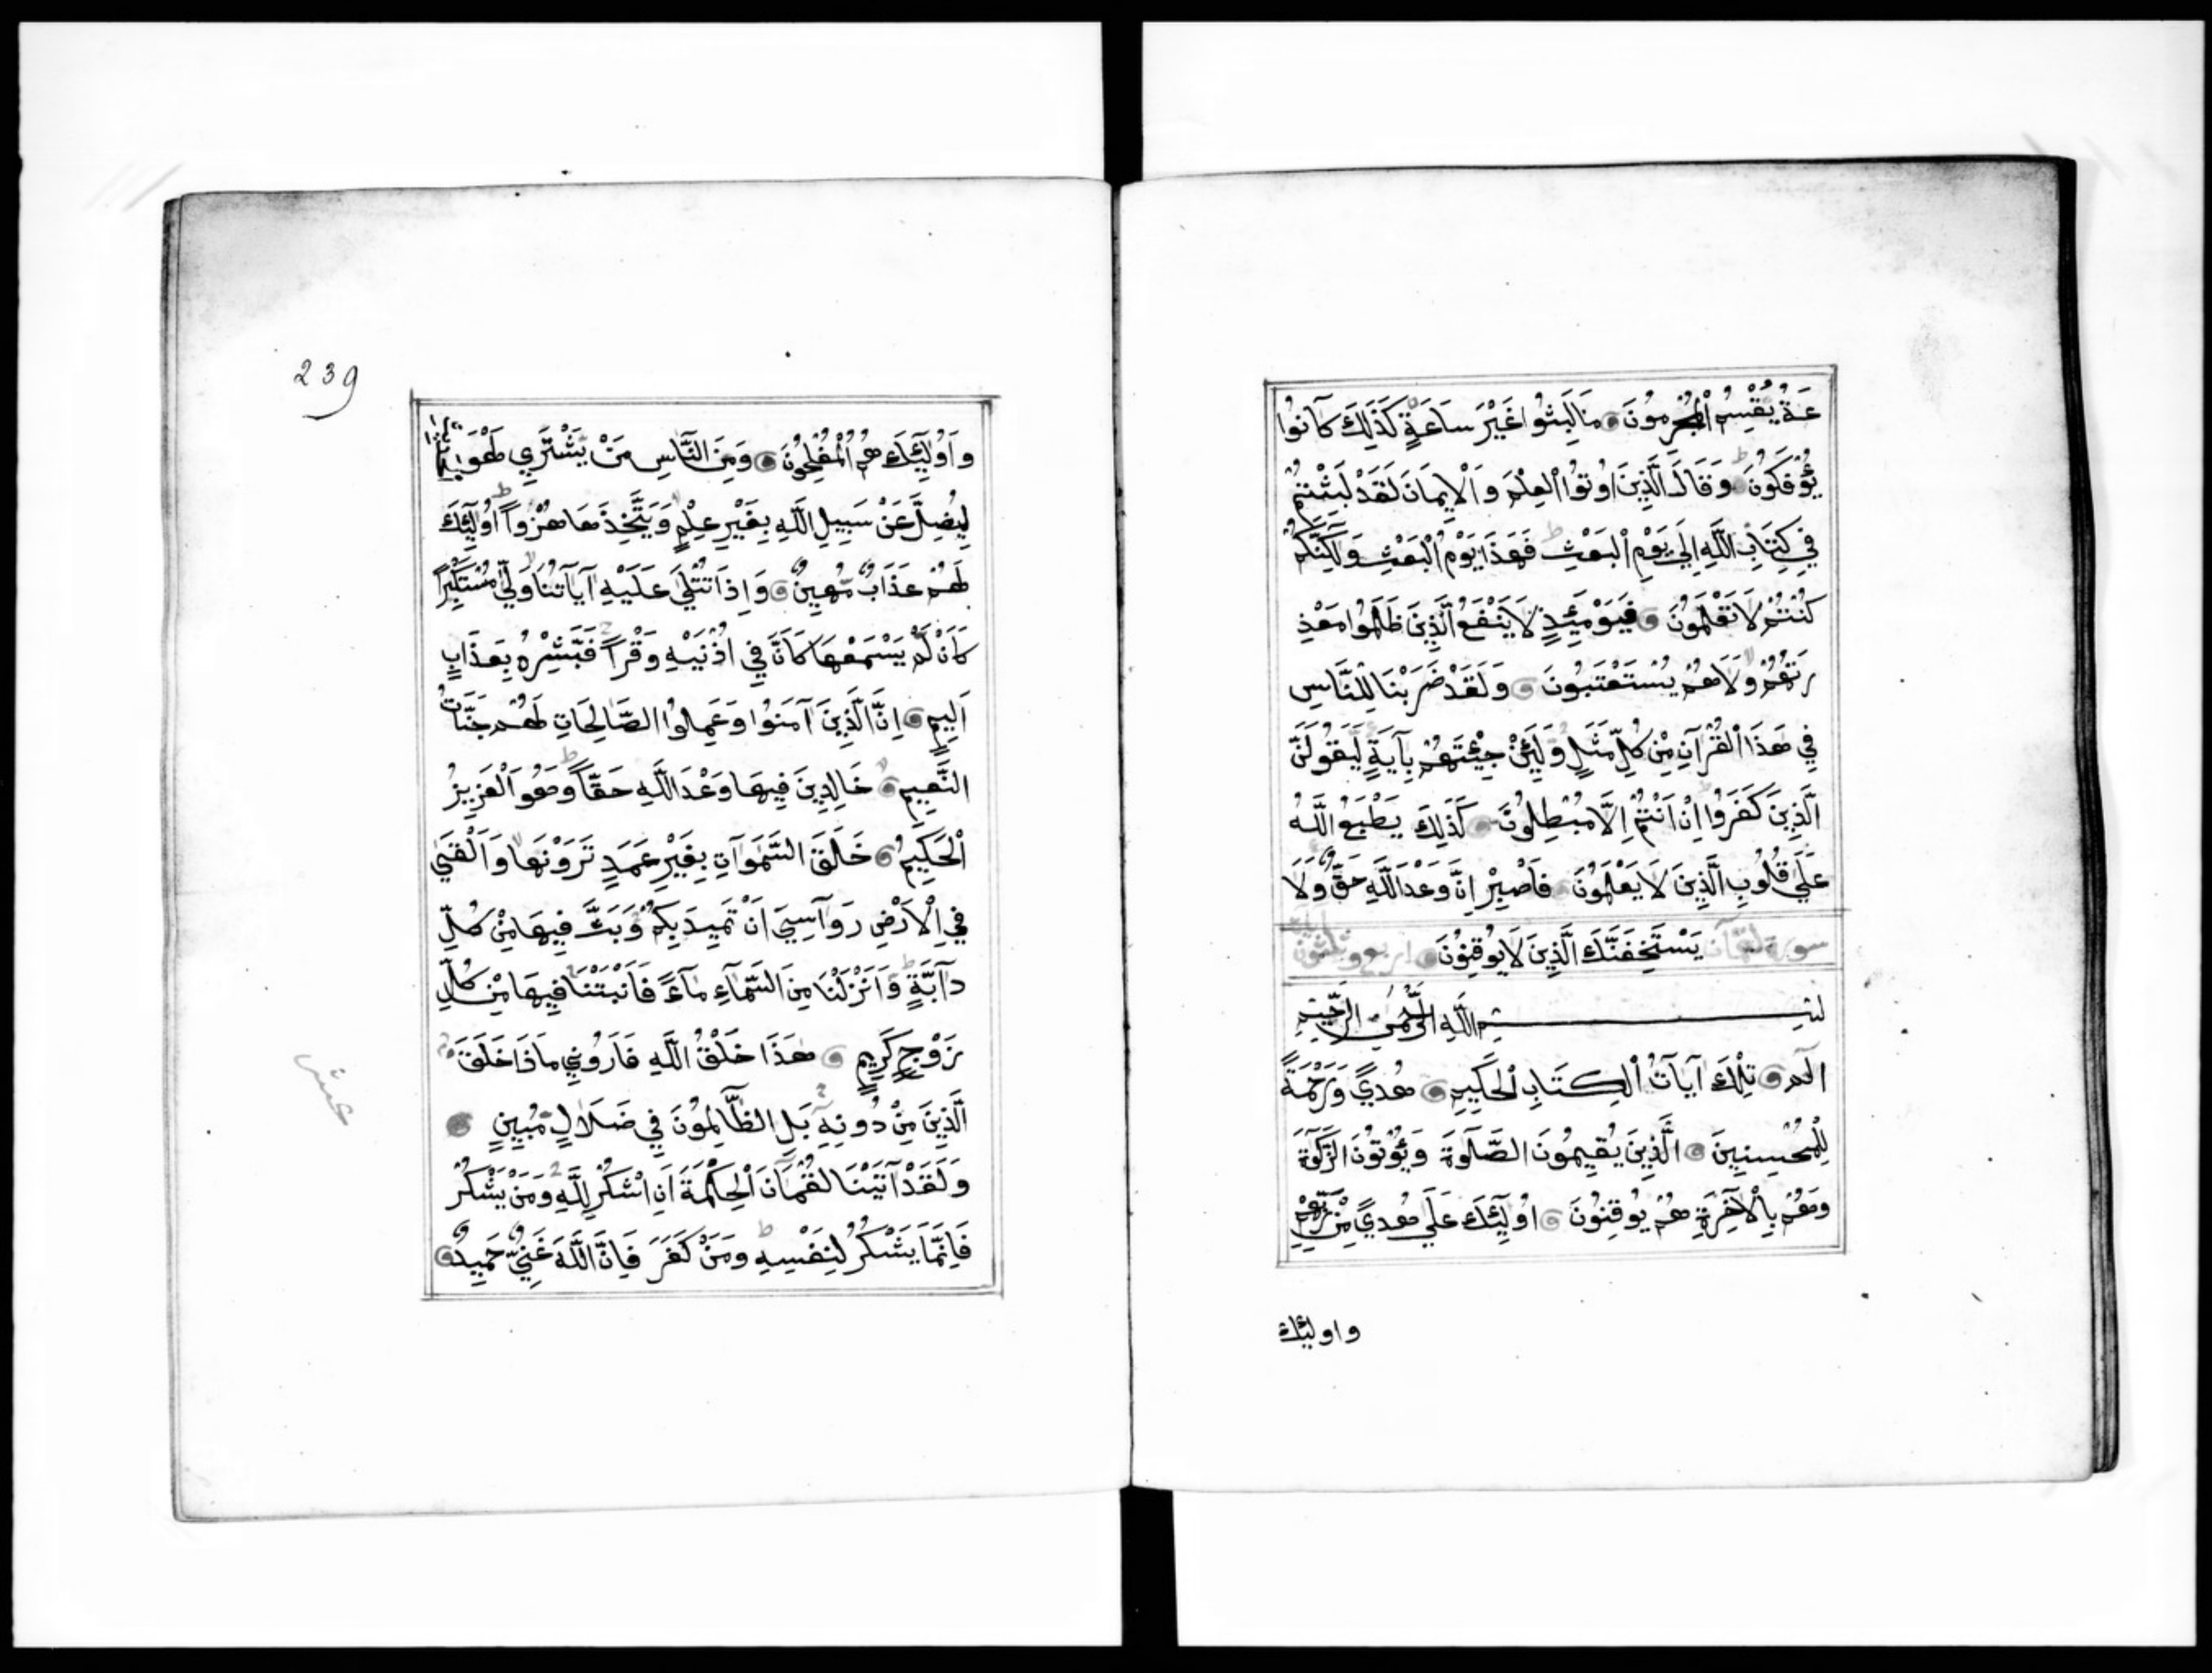 عَةُ يُقْسِمُ الْمُجْرِمُونَ مَا لَبِثُوا غَيْرَ سَاعَةٍ كَذَلِكَ كَانُوا
يُؤْفَكُونَ وَقَالَ الَّذِينَ اُوتُوا الْعِلْمَ وَالْاِيمَانَ لَقَدْ لَبِثْتُمْ
فِي كِتَابِ اللَّهِ اِلَى يَوْمِ الْبَعْثِ فَهَذَا يَوْمُ الْبَعْثِ وَلَكِنَّكُمْ
كُنْتُمْ لَا تَعْلَمُونَ فَيَوْمَئِذٍ لَا يَنْفَعُ الَّذِينَ ظَلَمُوا مَعْذِ
رَتُهُمْ وَلَا هُمْ يُسْتَعْتَبُونَ وَلَقَدْ ضَرَبْنَا لِلنَّاسِ
فِي هَذَا الْقُرْآنِ مِنْ كُلِّ مَثَلٍ وَلَئِنْ جِئْتَهُمْ بِآيَةٍ لَيَقُولَنَّ
الَّذِينَ كَفَرُوا اِنْ اَنْتُمْ اِلَّا مُبْطِلُونَ كَذَلِكَ يَطْبَعُ اللَّهُ
عَلَى قُلُوبِ الَّذِينَ لَا يَعْلَمُونَ فَاصْبِرْ اِنَّ وَعْدَ اللَّهِ حَقٌّ وَلَا
يَسْتَخِفَنَّكَ الَّذِينَ لَا يُوقِنُونَ
سورة لقمان اربع وثلثون
بسم اللَّهِ الرَّحْمَنِ الرَّحِيمِ
الٓمٓ تِلْكَ آيَاتُ الْكِتَابِ الْحَكِيمِ هُدىً وَرَحْمَةً
لِلْمُحْسِنِينَ الَّذِينَ يُقِيمُونَ الصَّلٰوةَ وَيُؤْتُونَ الزَّكٰوةَ
وَهُمْ بِالْآخِرَةِ هُمْ يُوقِنُونَ اُولَئِكَ عَلَى هُدىً مِنْ رَبِّهِمْ
واولئك
239
وَاُولَئِكَ هُمُ الْمُفْلِحُونَ وَمِنَ النَّاسِ مَنْ يَشْتَرِي لَهْوَ الحديث
لِيُضِلَّ عَنْ سَبِيلِ اللَّهِ بِغَيْرِ عِلْمٍ وَيَتَّخِذَهَا هُزُواً اُولَئِكَ
لَهُمْ عَذَابٌ مُهِينٌ وَاِذَا تُتْلَى عَلَيْهِ آيَاتُنَا وَلَّى مُسْتَكْبِراً
كَاَنْ لَمْ يَسْمَعْهَا كَاَنَّ فِي اُذُنَيْهِ وَقْراً فَبَشِّرْهُ بِعَذَابٍ
اَلِيمٍ اِنَّ الَّذِينَ آمَنُوا وَعَمِلُوا الصَّالِحَاتِ لَهُمْ جَنَّاتُ
النَّعِيمِ خَالِدِينَ فِيهَا وَعْدَ اللَّهِ حَقّاً وَهُوَ الْعَزِيزُ
الْحَكِيمُ خَلَقَ السَّمَوَاتِ بِغَيْرِ عَمَدٍ تَرَوْنَهَا وَاَلْقَى
فِي الْاَرْضِ رَوَاسِيَ اَنْ تَمِيدَ بِكُمْ وَبَثَّ فِيهَا مِنْ كُلِّ
دَآبَّةٍ وَاَنْزَلْنَا مِنَ السَّمَآءِ مَآءً فَاَنْبَتْنَا فِيهَا مِنْ كُلِّ
زَوْجٍ كَرِيمٍ هَذَا خَلْقُ اللَّهِ فَاَرُونِي مَاذَا خَلَقَ
الَّذِينَ مِنْ دُونِهِ بَلِ الظَّالِمُونَ فِي ضَلَالٍ مُبِينٍ
وَلَقَدْ آتَيْنَا لُقْمَانَ الْحِكْمَةَ اَنِ اشْكُرْ لِلَّهِ وَمَنْ يَشْكُرْ
فَاِنَّمَا يَشْكُرُ لِنَفْسِهِ وَمَنْ كَفَرَ فَاِنَّ اللَّهَ غَنِيٌّ حَمِيدٌ
عشر